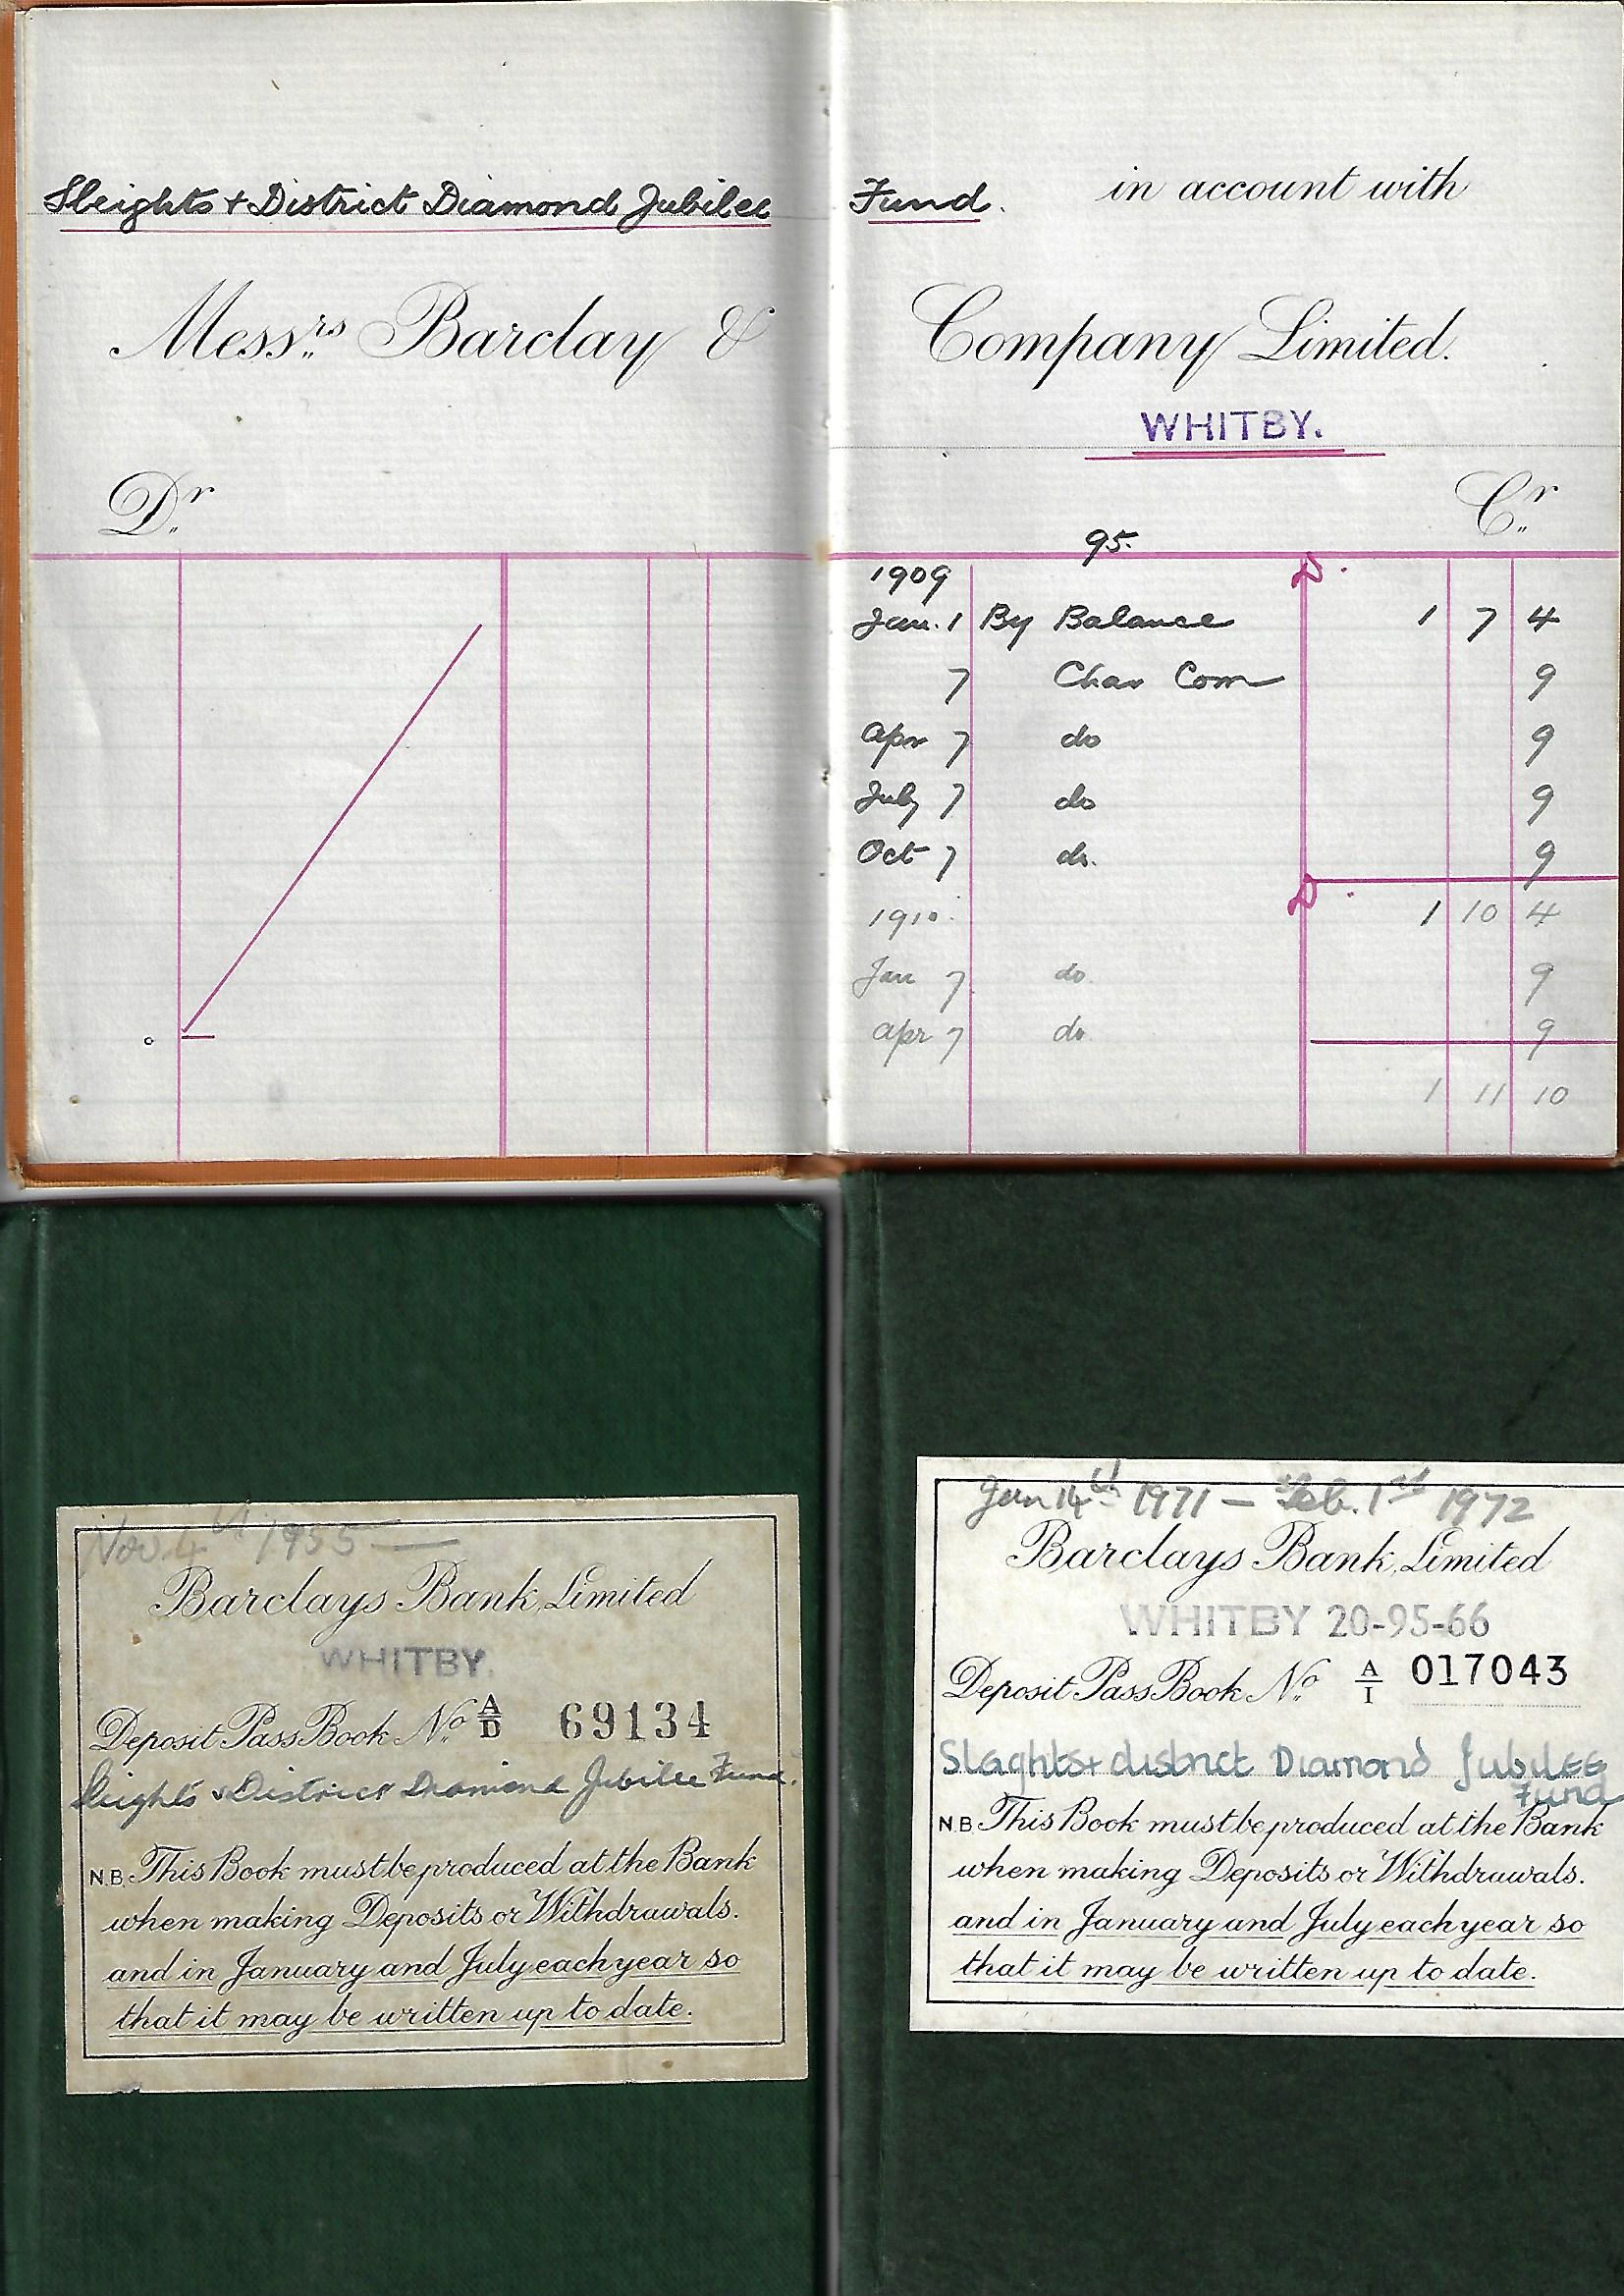 Sleights + District Diamond Jubilee Fund. in account with
Messrs Barclay & Company Limited.
WHITBY.
Dr Cr
95.
1909
Jan. 1 By Balance 1 7 4
7 Char Com 9
Apr 7 do 9
July 7 do 9
Oct 7 do. 9
1910. 1 10 4
Jan 7 do. 9
Apr 7 do 9
1 11 10
Nov. 4th 1955 —
Barclays Bank Limited
WHITBY.
Deposit Pass Book No. A/D 69134
Sleights & District Diamond Jubilee Fund.
N.B. This Book must be produced at the Bank
when making Deposits or Withdrawals.
and in January and July each year so
that it may be written up to date.
Jan 14th 1971 — Feb. 1st 1972
Barclays Bank Limited
WHITBY 20-95-66
Deposit Pass Book No. A/I 017043
Slaghts + district Diamond Jubilee
Fund
N.B. This Book must be produced at the Bank
when making Deposits or Withdrawals.
and in January and July each year so
that it may be written up to date.